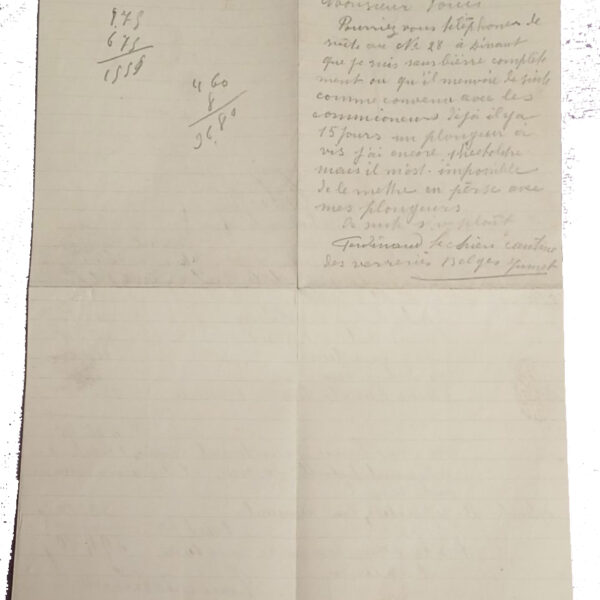 9.75
675
1559
4 60
8
96.80
Monsieur
Pourriez vous téléphoner de
suite au No 28 à Dinant
que je suis sans bierre complete
ment ou qu'il m'envoie de suite
comme convenu avec les
commioneurs déja il y a
15 jours un plongeur à
vis j'ai encore
mais il m'est impossible
de le mettre en perse avec
mes plongeurs
De suite s v plait
Ferdinand Lechien cantine
des verreries Belges Jumet